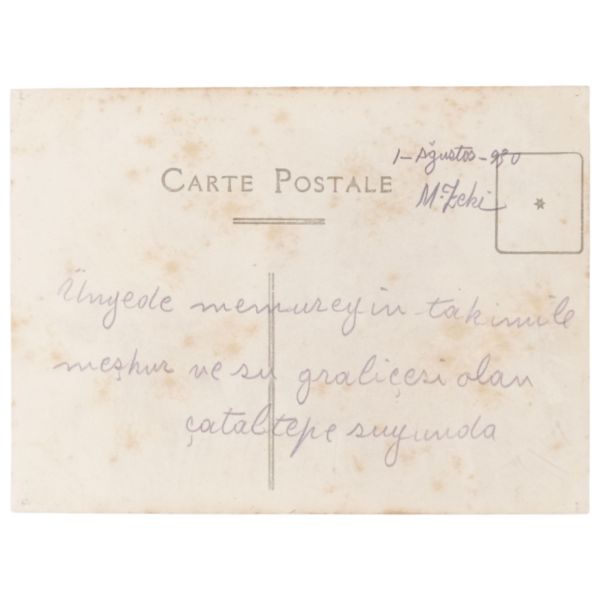 1-Ağustos-930
CARTE POSTALE
M. Zeki
Ünyede memureyin takimile
meşhur ve su graliçesi olan
çataltepe suyunda